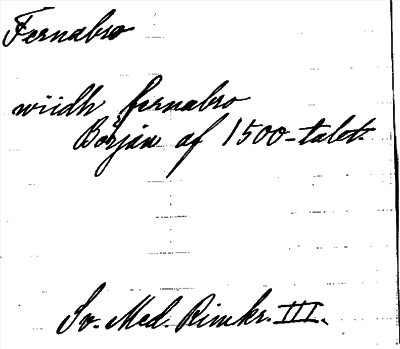 Fernabro
wiidh fernabro
Början af 1500-talet.
Sv. Med. Rimkr. III.